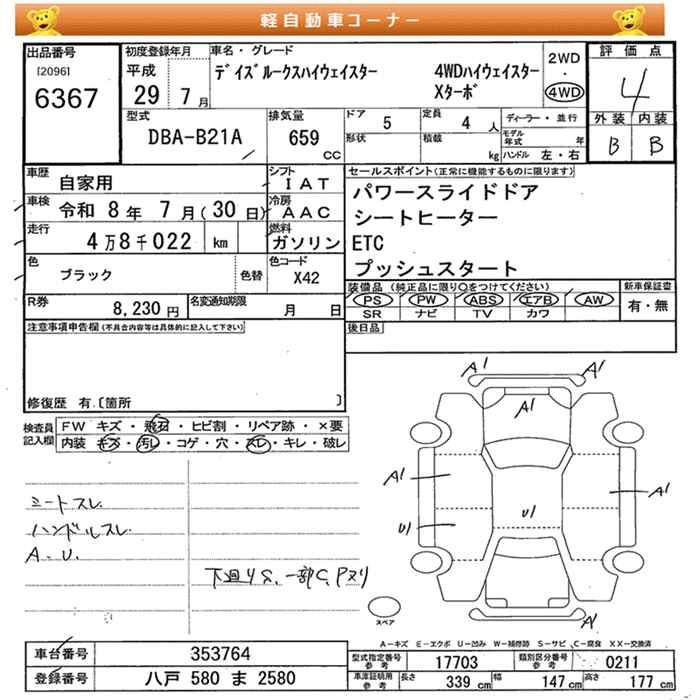 軽自動車コーナー
出品番号
[2096]
6367
初度登録年月
平成
29 7月
車名・グレード
デイズルークスハイウェイスター 4WDハイウェイスター
Xターボ
2WD
・
4WD
評価点
4
外装 内装
B B
型式
DBA-B21A
排気量
659
CC
ドア 5
形状
定員 4 人
積載 kg
ディーラー・並行
モデル年式 年
ハンドル 左・右
車歴
自家用
車検 令和 8年 7月(30日)
走行 4万8千022 km
色
ブラック
色替
シフト
IAT
冷房
AAC
燃料
ガソリン
色コード
X42
R券
8,230円
名変通知期限
月 日
セールスポイント(正常に機能するものに限ります)
パワースライドドア
シートヒーター
ETC
プッシュスタート
装備品 (純正品に限り○をつけてください)
PS PW ABS エアB AW
SR ナビ TV カワ
新車保証書
有・無
後日品
注意事項申告欄(不具合内容等は具体的に記入して下さい)
修復歴 有.〔箇所 〕
検査員
記入欄
FW キズ・飛石・ヒビ割・リペア跡・×要
内装・キズ・汚レ・コゲ・穴・スレ・キレ・破レ
シートスレ
ハンドルスレ
A.U.
下廻りS、一部C、Pヌリ
A1
A1
A1
A1
A1
U1
U1
A1
スペア
A-キズ E-エクボ U-凹み W-補修跡 S-サビ C-腐食 XX-交換済
車台番号 353764
登録番号 八戸 580 ま 2580
型式指定番号
参考
17703
類別区分番号
参考
0211
車庫証明用
参考
長さ 339 cm
幅 147 cm
高さ 177 cm